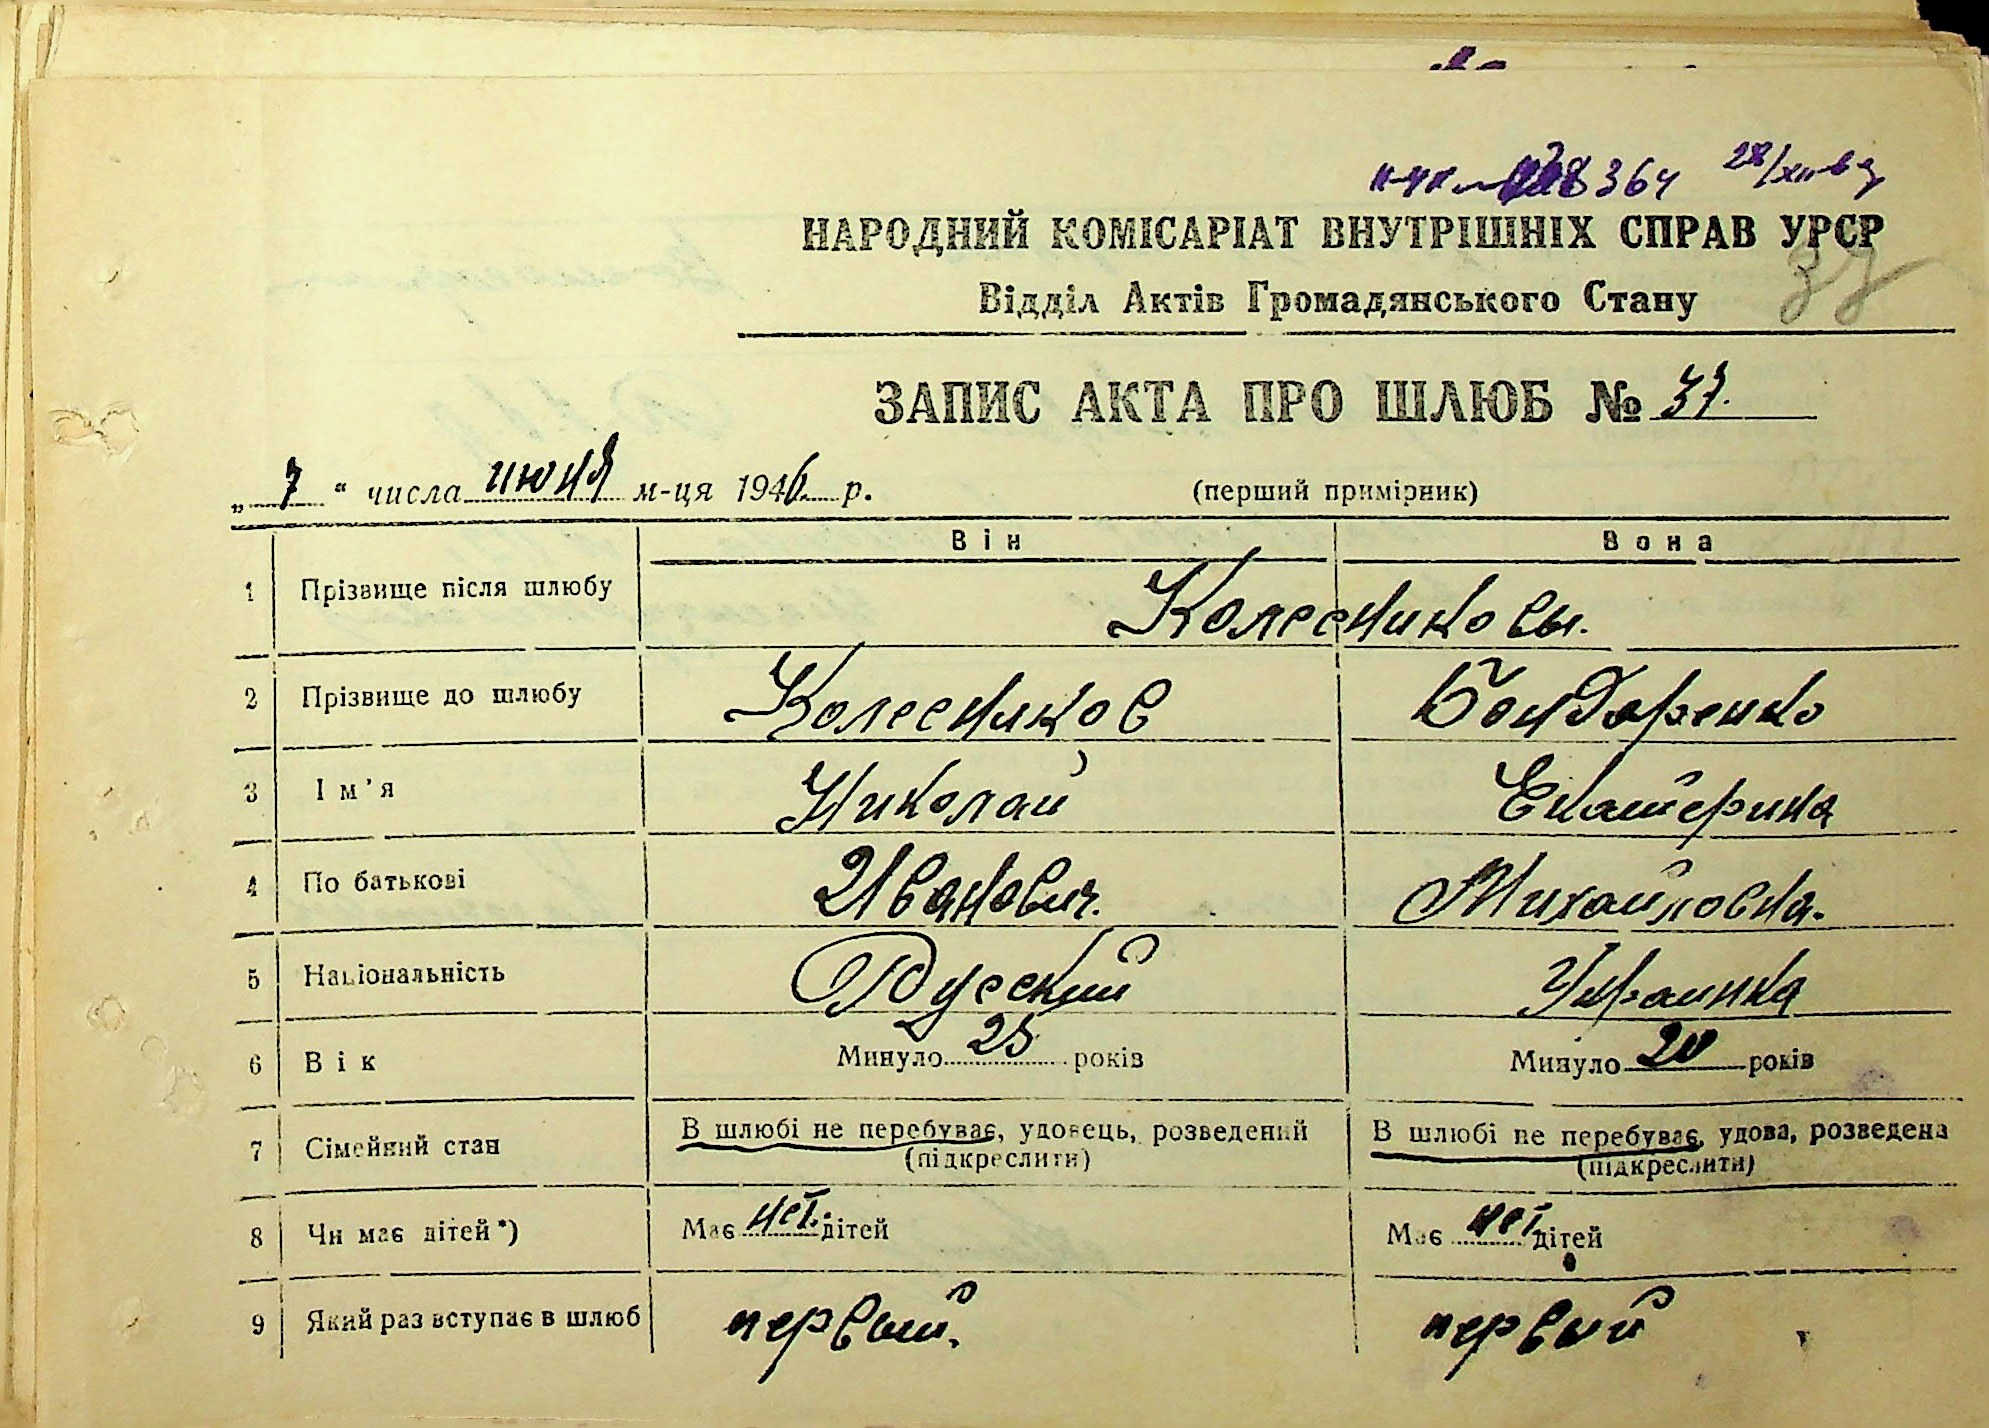 364
НАРОДНИЙ КОМІСАРІАТ ВНУТРІШНІХ СПРАВ УРСР
Відділ Актів Громадянського Стану
ЗАПИС АКТА ПРО ШЛЮБ № 37.
„ 7 “ числа июня м-ця 1946 р. (перший примірник)
Він Вона
1 Прізвище після шлюбу Колесниковы.
2 Прізвище до шлюбу Колесников Бондаренко
3 Ім'я Николай Екатерина
4 По батькові Иванович. Михайловна.
5 Національність Русский Украинка
6 Вік Минуло 25 років Минуло 20 років
7 Сімейний стан В шлюбі не перебуває, удовець, розведений В шлюбі не перебуває, удова, розведена
(підкреслити) (підкреслити)
8 Чи має дітей *) Має нет. дітей Має нет дітей
9 Який раз вступає в шлюб первый. первый